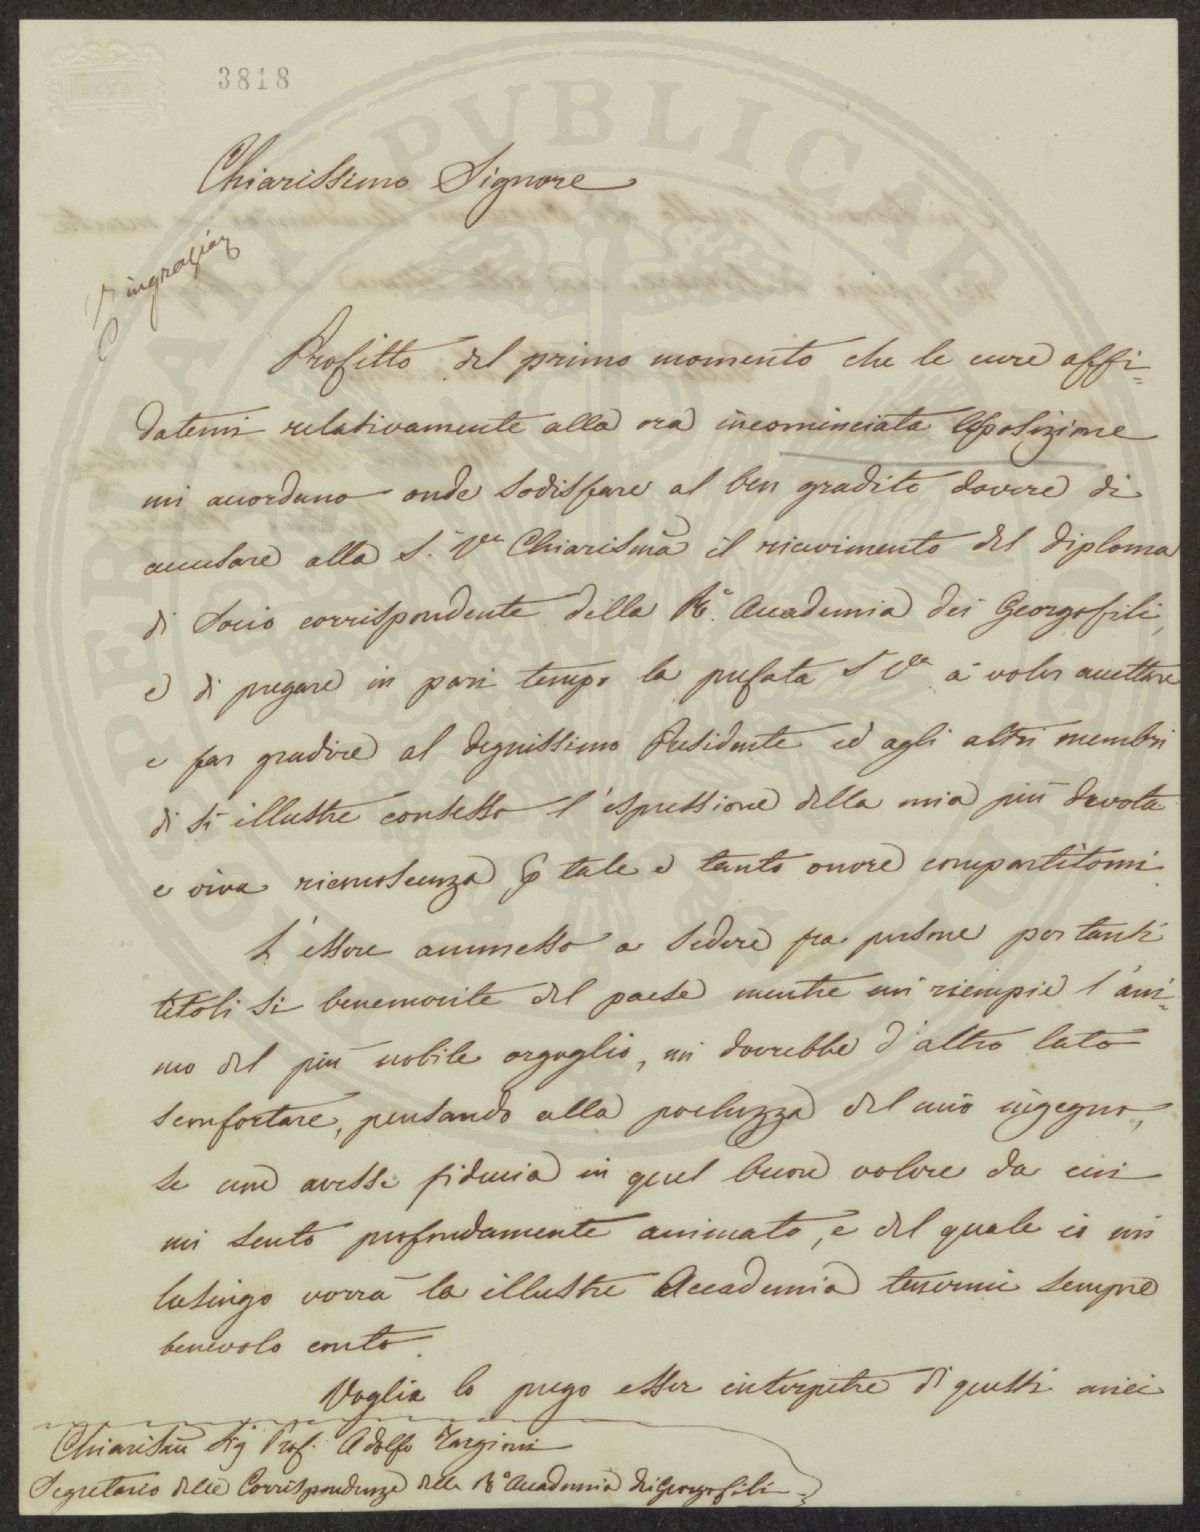 3818
Chiarissimo Signore
Ringraziar
Profitto del primo momento che le cure affi=
datemi relativamente alla ora incominciata Esposizione
mi accordano onde sodisfare al ben gradito dovere di
accusare alla S. Va Chiarissma il ricevimento del diploma
di Socio corrispondente della Ra. Accademia dei Georgofili,
e di pregare in pari tempo la prefata S Va a voler accettare
e far gradire al degnissimo Presidente ed agli altri membri
di sì illustre consesso l'espressione della mia più devota
e viva riconoscenza per tale e tanto onore compartitomi.
L'essere ammesso a sedere fra persone per tanti
titoli sì benemerite del paese mentre mi riempie l'ani=
mo del più nobile orgoglio, mi dovrebbe d'altro lato
sconfortare, pensando alla pochezza del mio ingegno,
se non avessi fiducia in quel buon volere da cui
mi sento profondamente animato, e del quale io mi
lusingo vorrà la illustre Accademia tenermi sempre
benevolo conto.
Voglia la prego esser interpetre di questi miei
Chiarissmo Sig Prof. Adolfo Targioni
Segretario delle Corrispondenze della Ra Accademia dei Georgofili
SPEPERAT
PUBLICAE